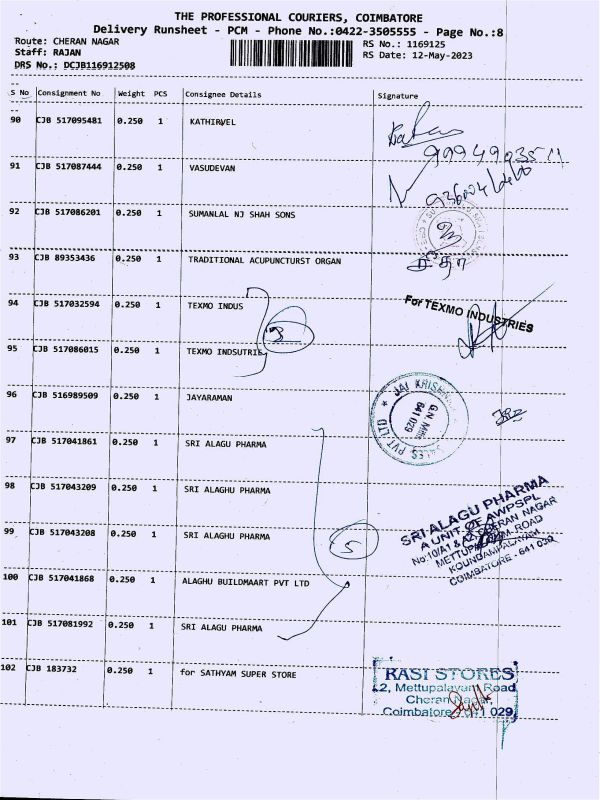 THE PROFESSIONAL COURIERS, COIMBATORE
Delivery Runsheet - PCM - Phone No.:0422-3505555 - Page No.:8
Route: CHERAN NAGAR
RS No.: 1169125
Staff: RAJAN
RS Date: 12-May-2023
DRS No.: DCJB116912508
S No Consignment No Weight PCS Consignee Details Signature
90 CJB 517095481 0.250 1 KATHIRVEL
91 CJB 517087444 0.250 1 VASUDEVAN
92 CJB 517086201 0.250 1 SUMANLAL NJ SHAH SONS
93 CJB 89353436 0.250 1 TRADITIONAL ACUPUNCTURST ORGAN
94 CJB 517032594 0.250 1 TEXMO INDUS
For TEXMO INDUSTRIES
3
95 CJB 517086015 0.250 1 TEXMO INDSUTRIE
96 CJB 516989509 0.250 1 JAYARAMAN
JAI KRISHNA
G.N. Mills
641 029
SALES PVT LTD
97 CJB 517041861 0.250 1 SRI ALAGU PHARMA
98 CJB 517043209 0.250 1 SRI ALAGHU PHARMA
99 CJB 517043208 0.250 1 SRI ALAGHU PHARMA
5
SRI ALAGU PHARMA
A UNIT OF AWPSPL
CHERAN NAGAR
METTUPALAYAM ROAD
KOUNDAMPALAYAM
COIMBATORE - 641 030
100 CJB 517041868 0.250 1 ALAGHU BUILDMAART PVT LTD
101 CJB 517081992 0.250 1 SRI ALAGU PHARMA
102 CJB 183732 0.250 1 for SATHYAM SUPER STORE
RASI STORES
2, Mettupalayam Road,
Cheran Nagar,
Coimbatore 641 029